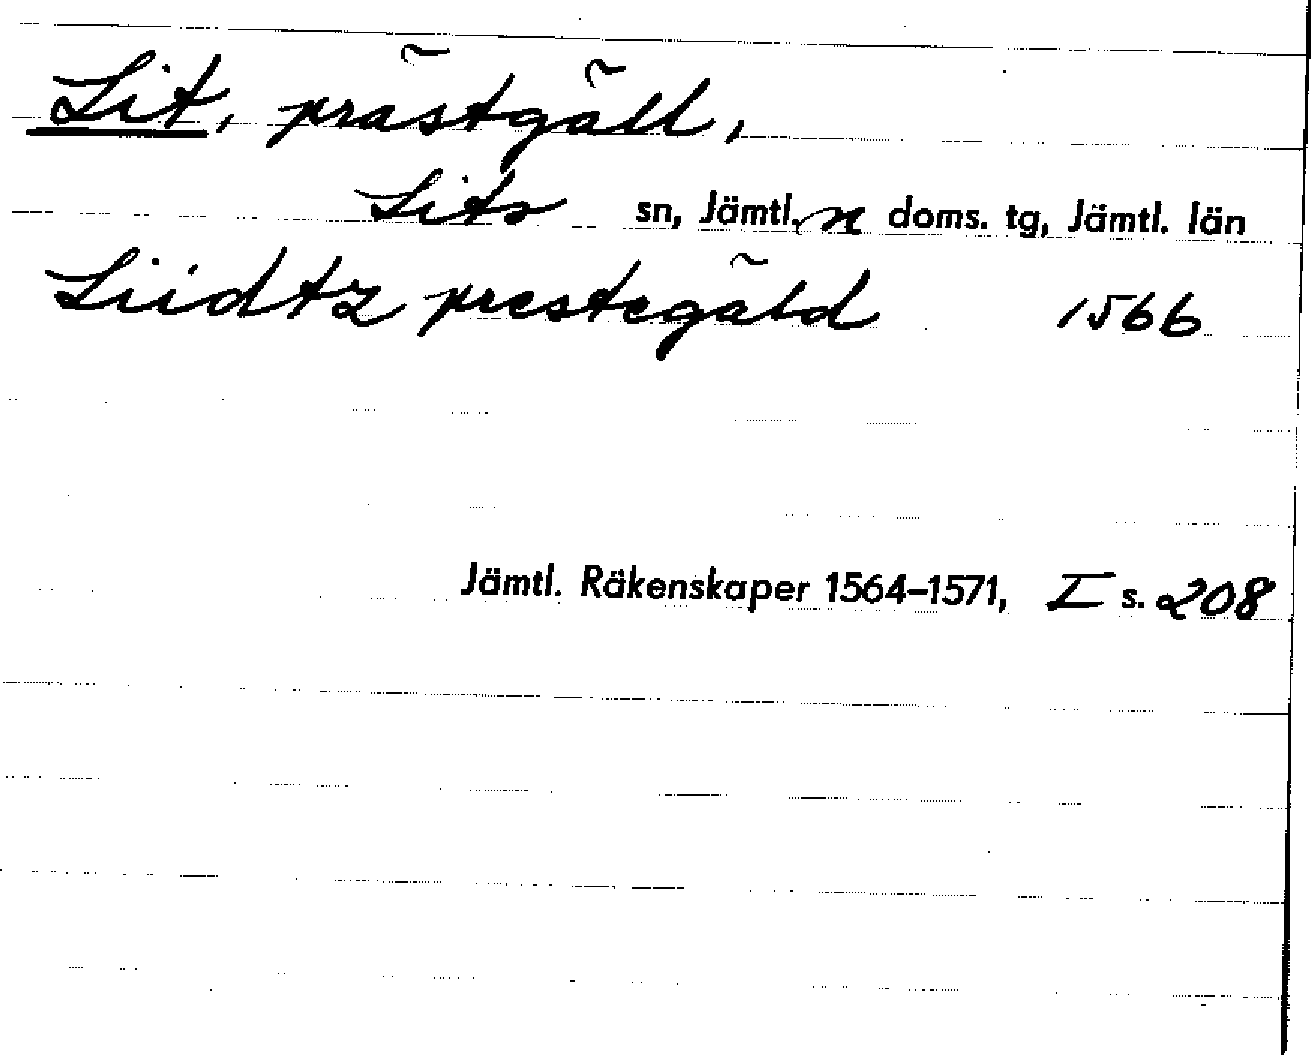 Lit, prästgäll,
Lits sn, Jämtl. n doms. tg, Jämtl. län
Liidtz prestegäld 1566
Jämtl. Räkenskaper 1564–1571, I s. 208